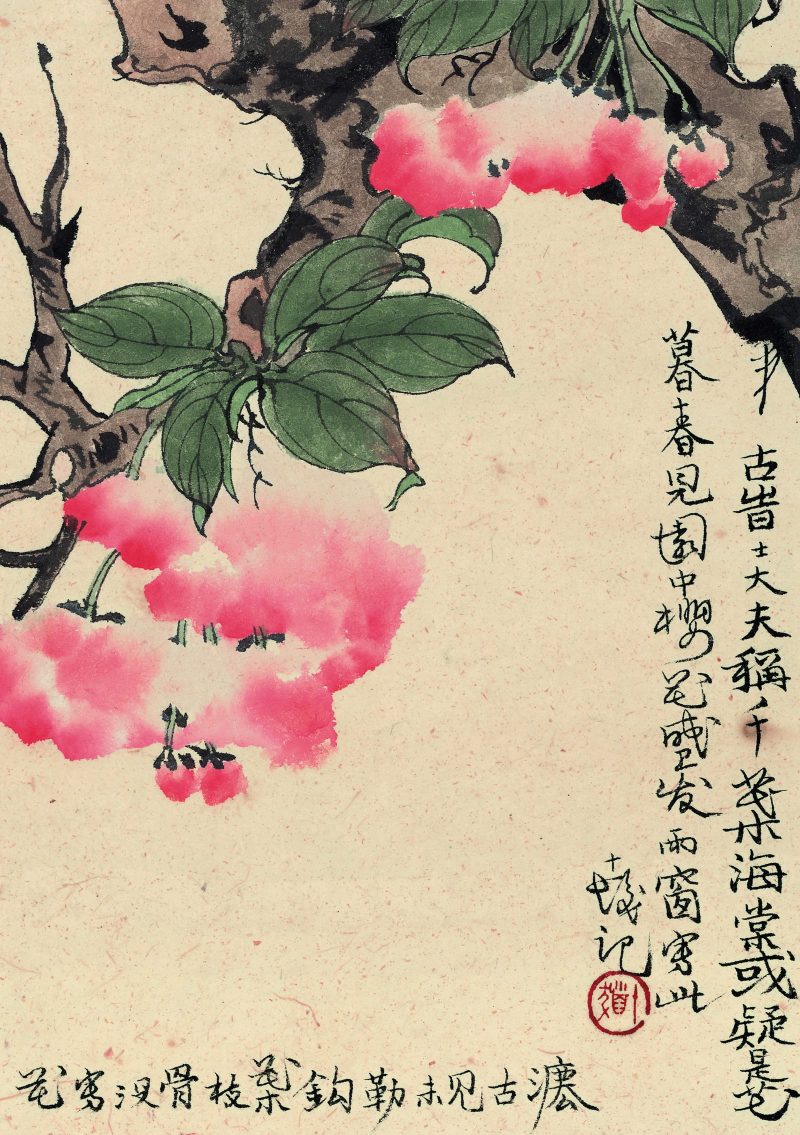 古昔士大夫稱千葉海棠或疑是花
暮春見園中櫻花盛发雨窗寫此
記
花寫没骨枝葉鈎勒未见古灋